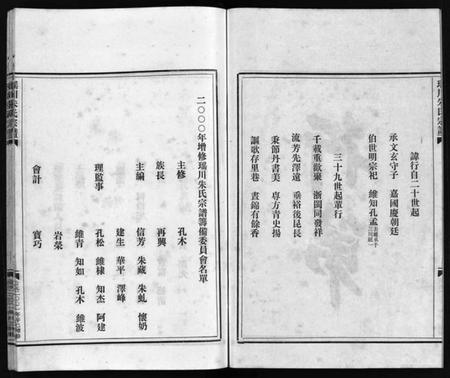 瑞川朱氏宗譜
諱行自二十世起
承文玄守子　嘉國慶朝廷
伯世明宗祀　維知孔孟
三十九世起輩行
千載重歡聚　浙閩同發祥
流芳先澤遠　垂裕後昆長
秉節丹書美　專方青史揚
謳歌存里巷　晝錦有餘香
二〇〇〇年增修瑞川朱氏宗譜籌備委員會名單
主修　孔木
族長　再興
主編　信芳　朱藏　朱虬　懷奶
建生　華平　澤峰
理監事　孔松　維棣　知杰　阿建
維青　知如　孔木　維波
岩榮
會計　寶巧
瑞川朱氏宗譜